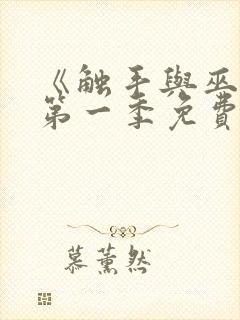 《触手與巫
第一季免費
慕薰然